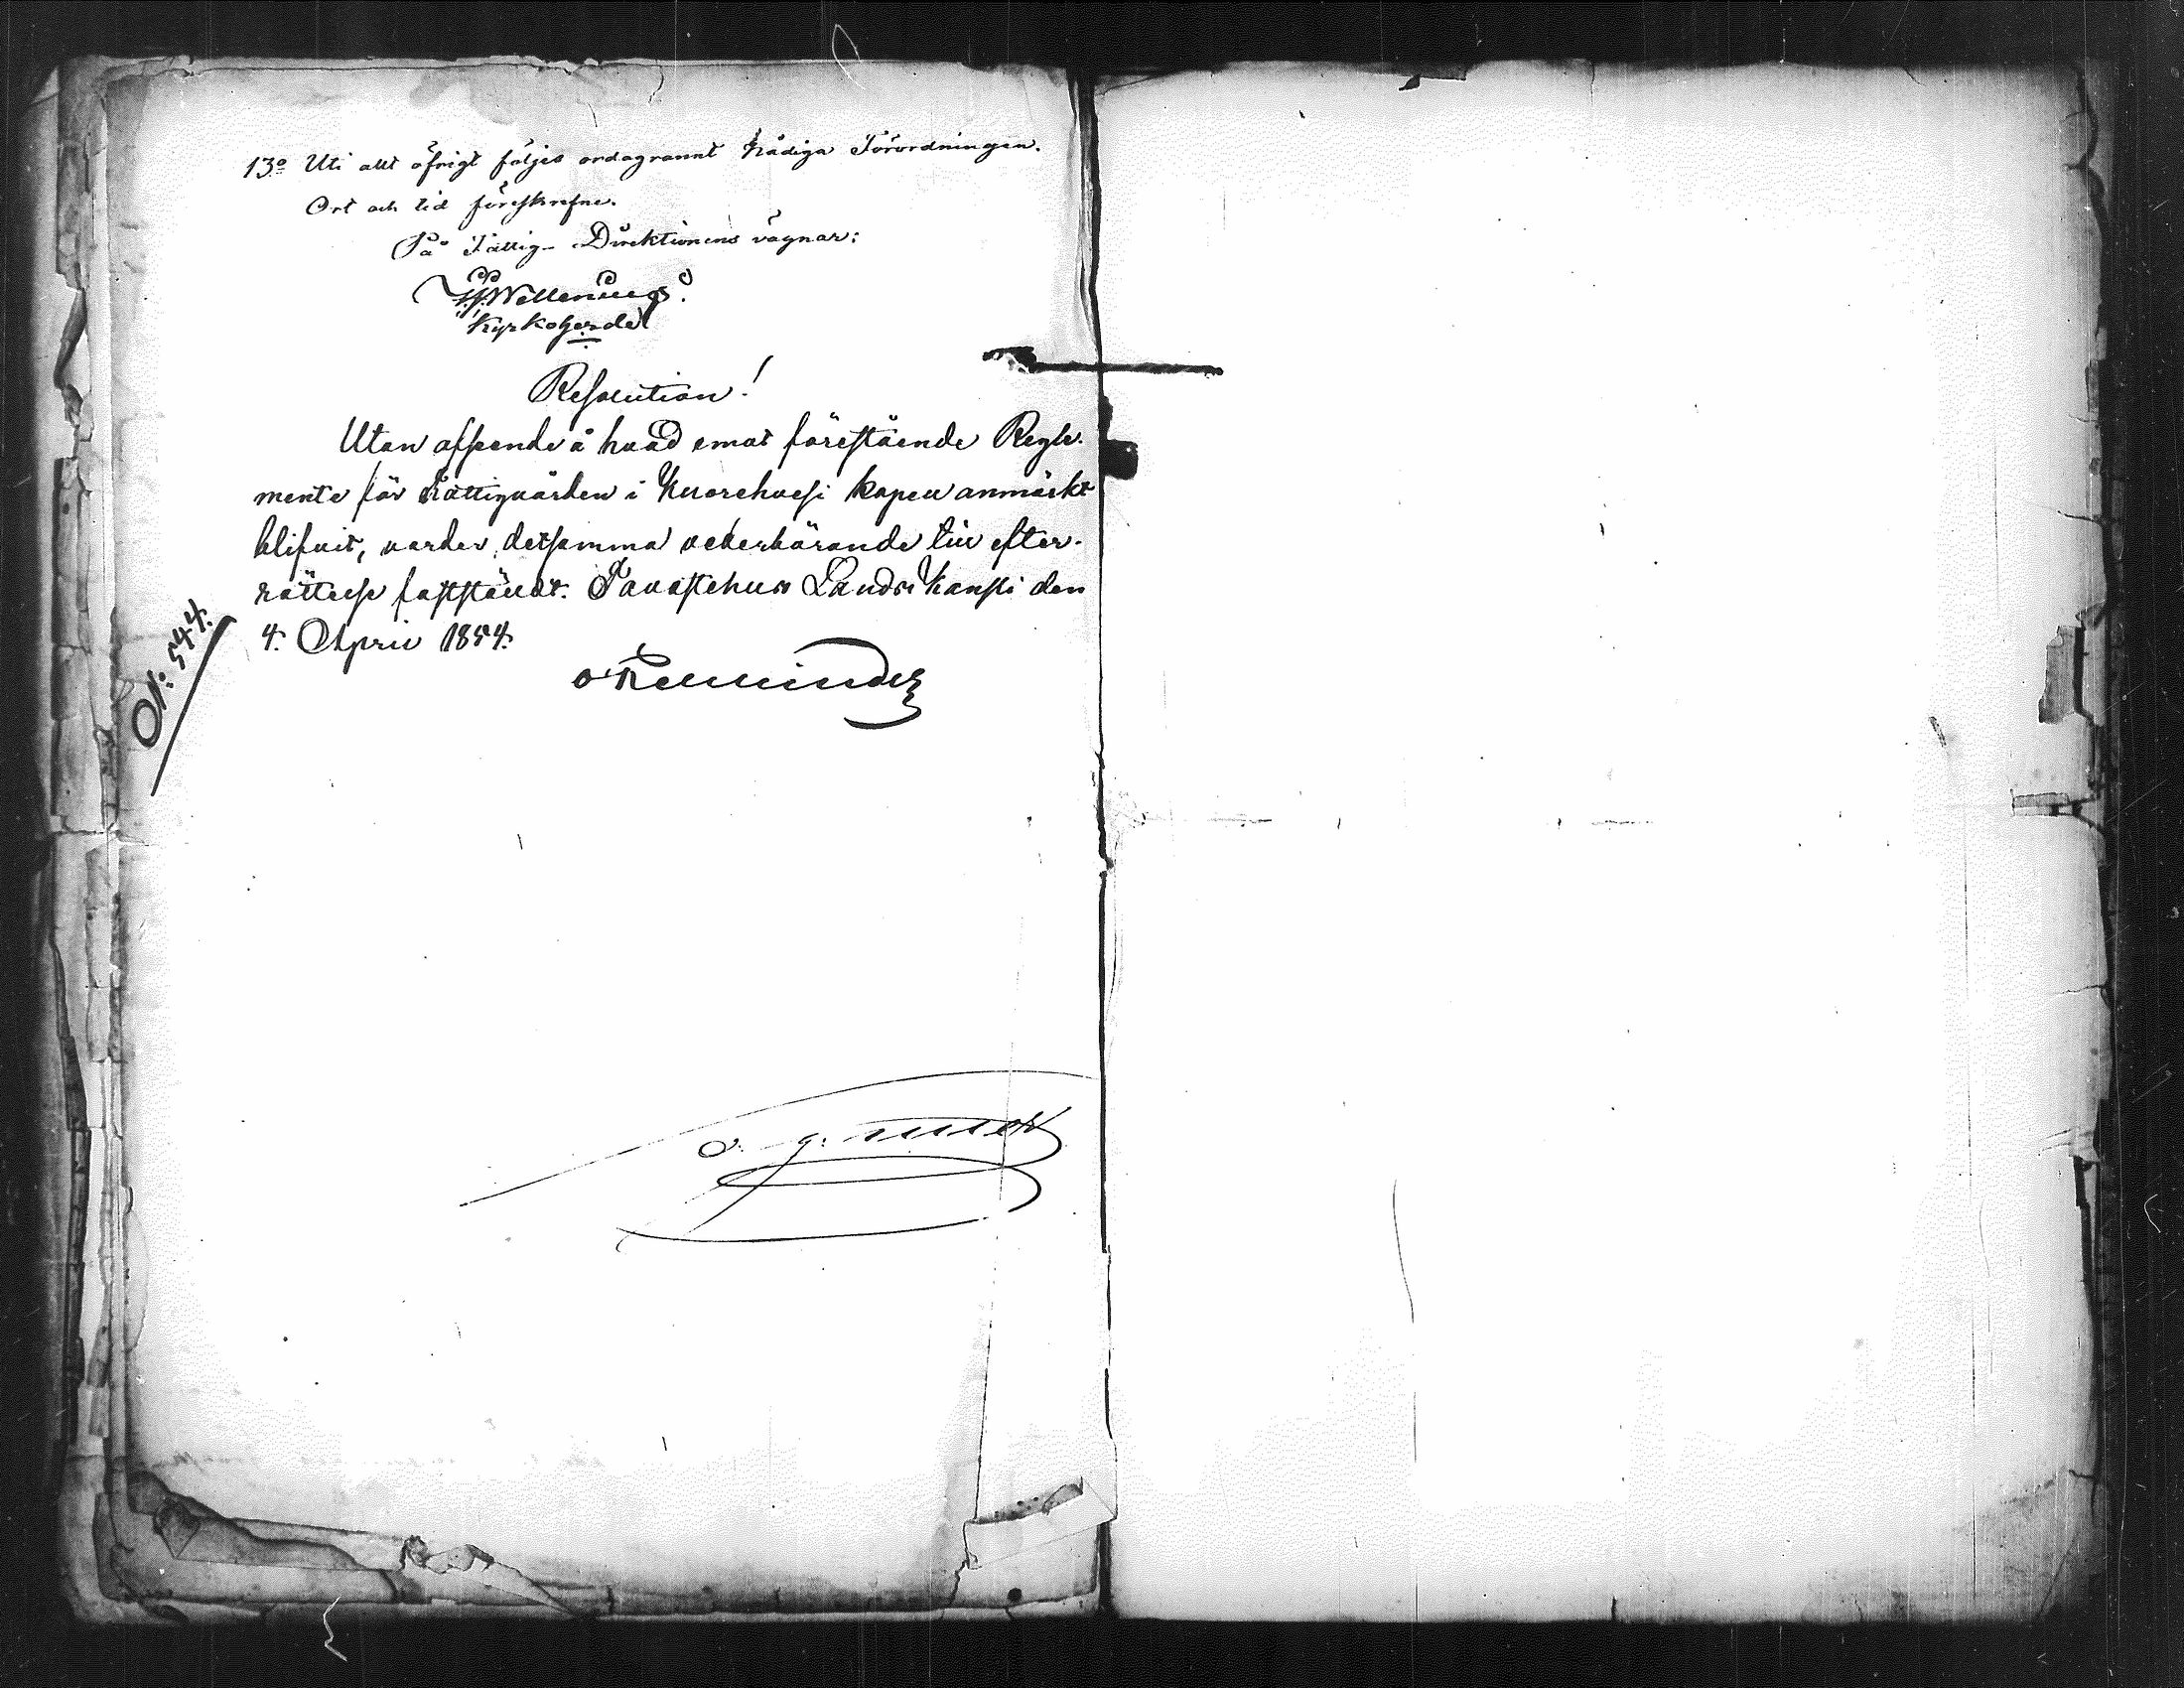 13o Uti allt öfrigt följes ordagrannt Nådiga Förordningen.
Ort och tid föreskrefne.
På Fattig-Direktionens vägnar:
Wellenius.
Kyrkoherde
Resolution!
Utan afseende å hvad emot förestående Regle-
mente för Fattigvården i Kuorehvesi kapell anmärkt
blifvit, varder detsamma vederbörande till efter-
rättelse fastställdt. Tavastehus Lands Kansli den
4. April 1854.
No: 544.